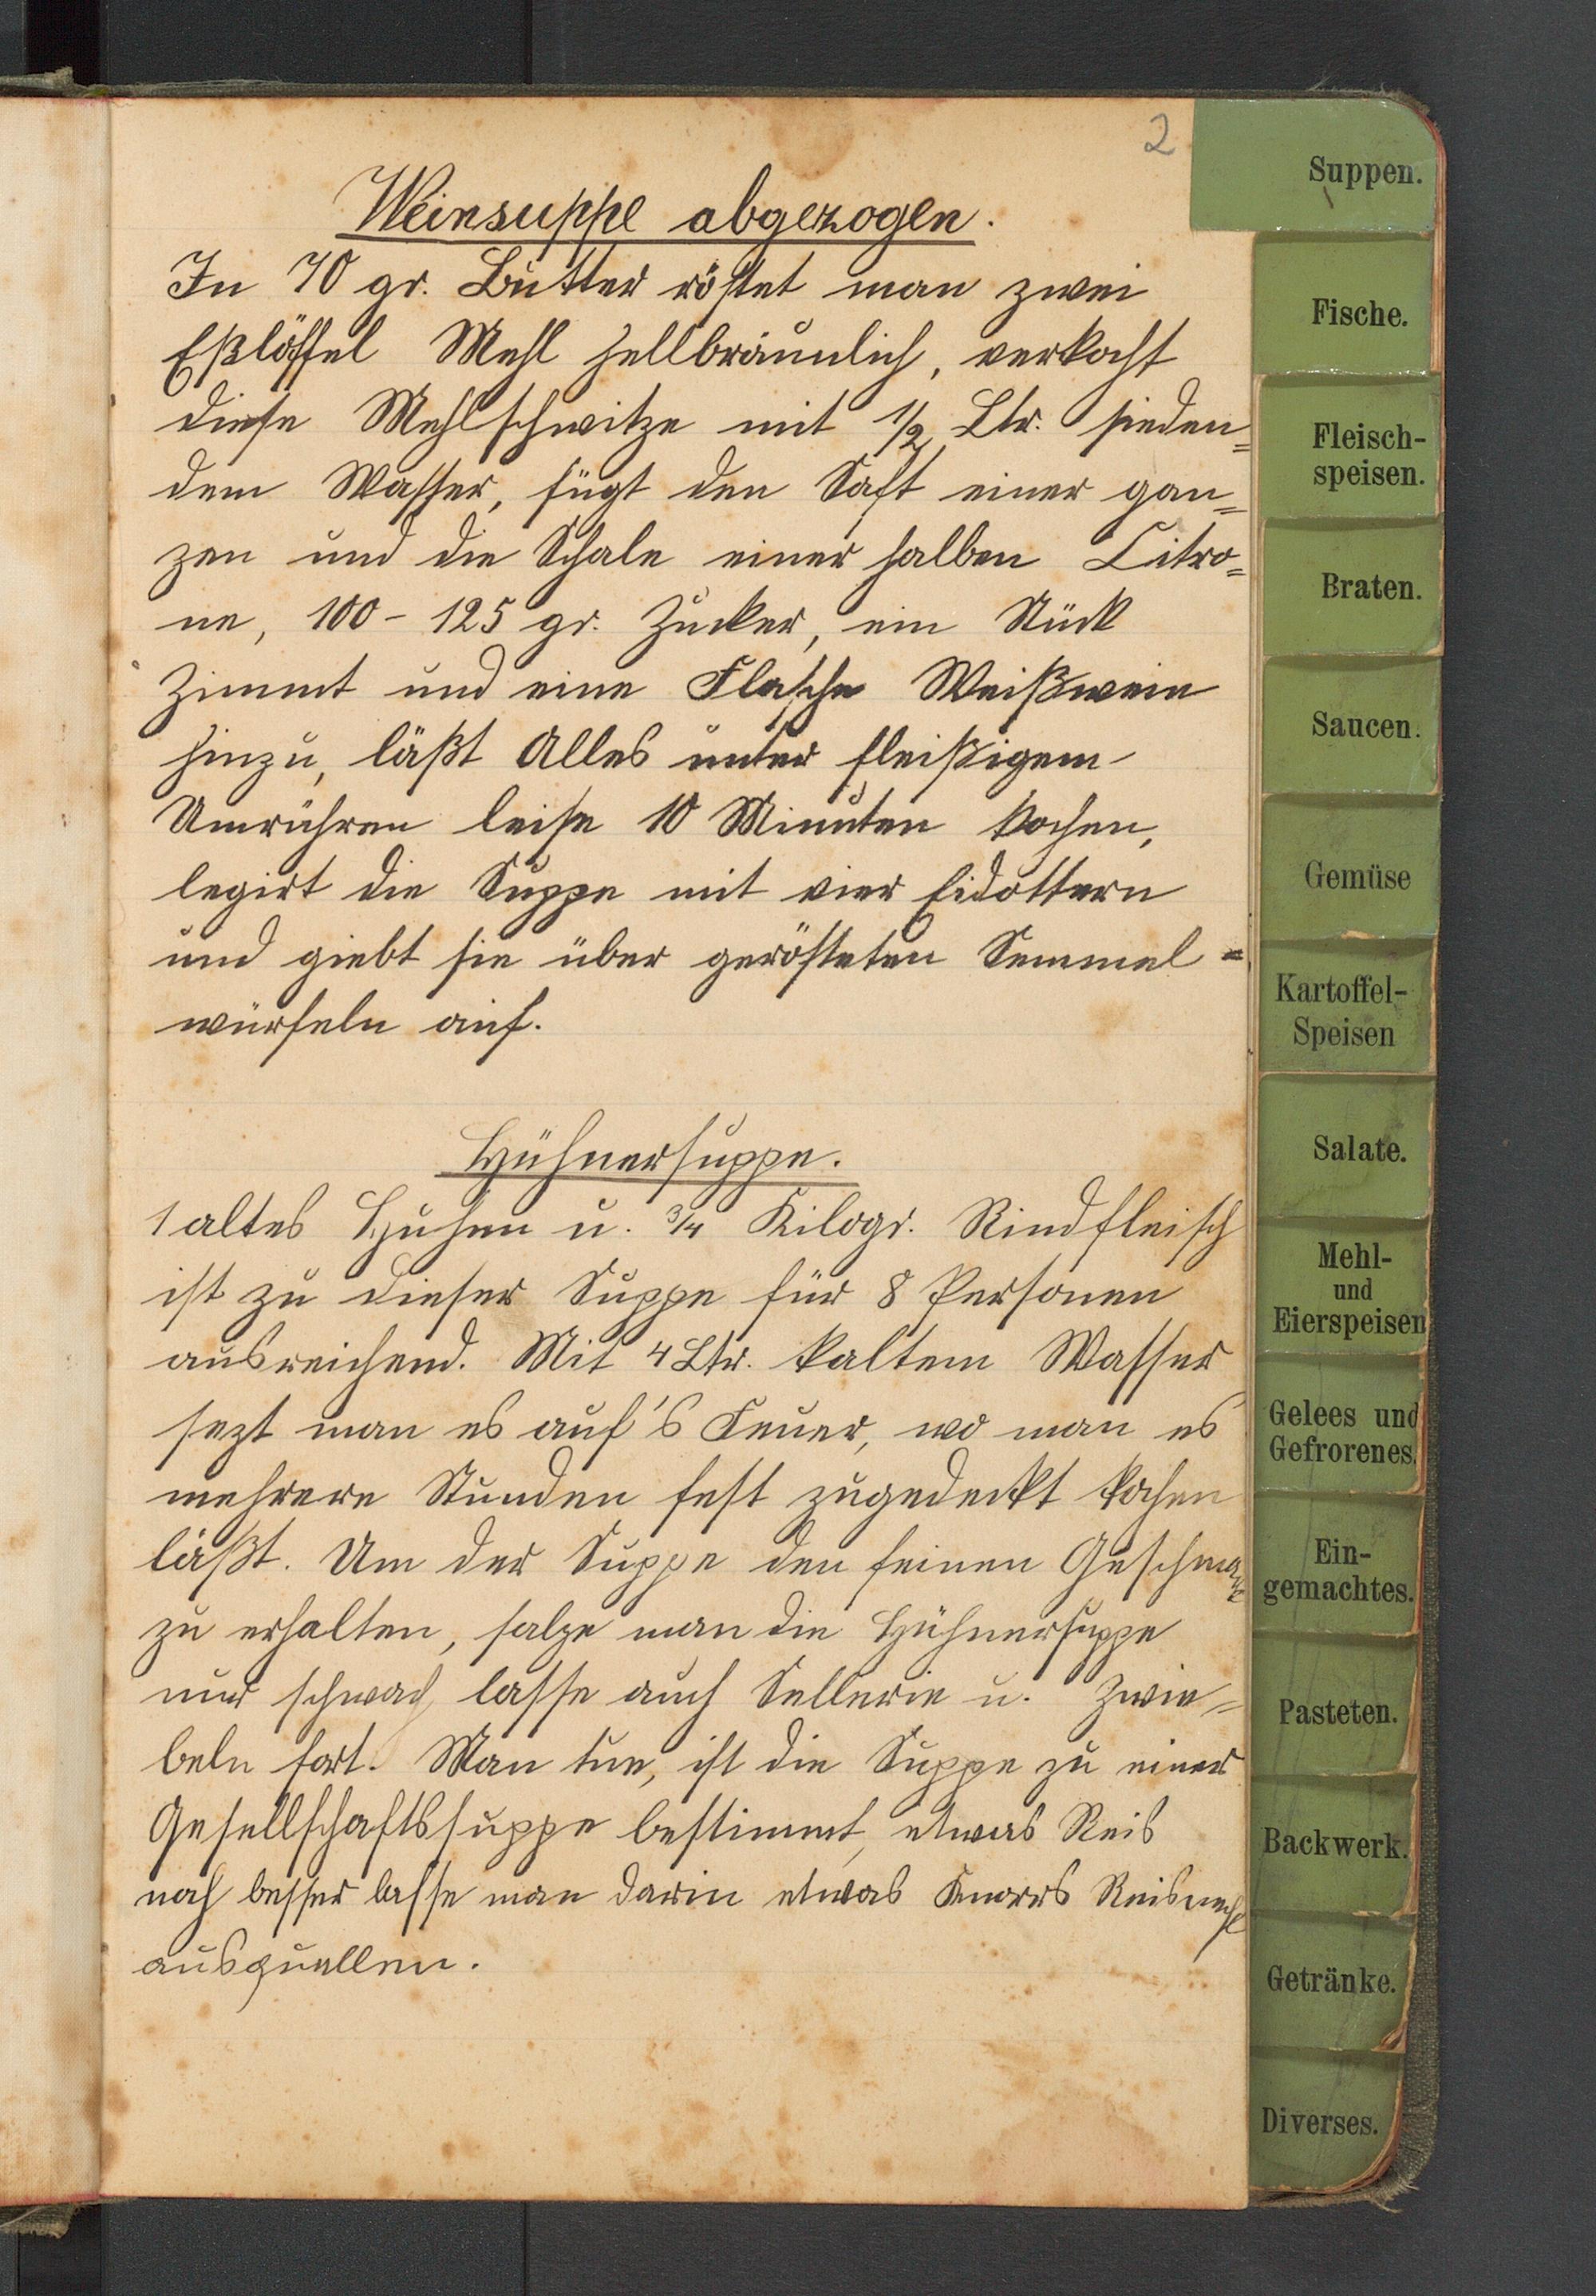 2
Weinsuppe abgezogen.
In 70 gr. Butter röstet man zwei
Eßlöffel Mehl hellbräunlich, verkocht
diese Mehlschwitze mit 1/2 Ltr. sieden=
dem Wasser, fügt den Saft einer gan=
zen und die Schale einer halben Citro=
ne, 100 - 125 gr. Zucker, ein Stück
Zimmt und eine Flasche Weißwein
hinzu, läßt Alles unter fleißigem
Umrühren leise 10 Minuten kochen,
legirt die Suppe mit vier Eidottern
und giebt sie über gerösteten Semmel=
würfeln auf.
Hühnersuppe.
1 altes Huhn u. 3/4 Kilogr. Rindfleisch
ist zu dieser Suppe für 8 Personen
ausreichend. Mit 4 Ltr. kaltem Wasser
sezt man es auf's Feuer, wo man es
mehrere Stunden fest zugedeckt kochen
läßt. Um der Suppe den feinen Geschmack
zu erhalten, salze man die Hühnersuppe
nur schwach lasse auch Sellerie u. Zwie=
beln fort. Man tue, ist die Suppe zu einer
Gesellschaftssuppe bestimmt, etwas Reis
noch besser lasse man darin etwas Knorrs Reismehl
ausquellen.
Suppen.
Fische.
Fleisch-
speisen.
Braten.
Saucen.
Gemüse
Kartoffel-
Speisen
Salate.
Mehl-
und
Eierspeisen
Gelees und
Gefrorenes.
Ein-
gemachtes.
Pasteten.
Backwerk.
Getränke.
Diverses.